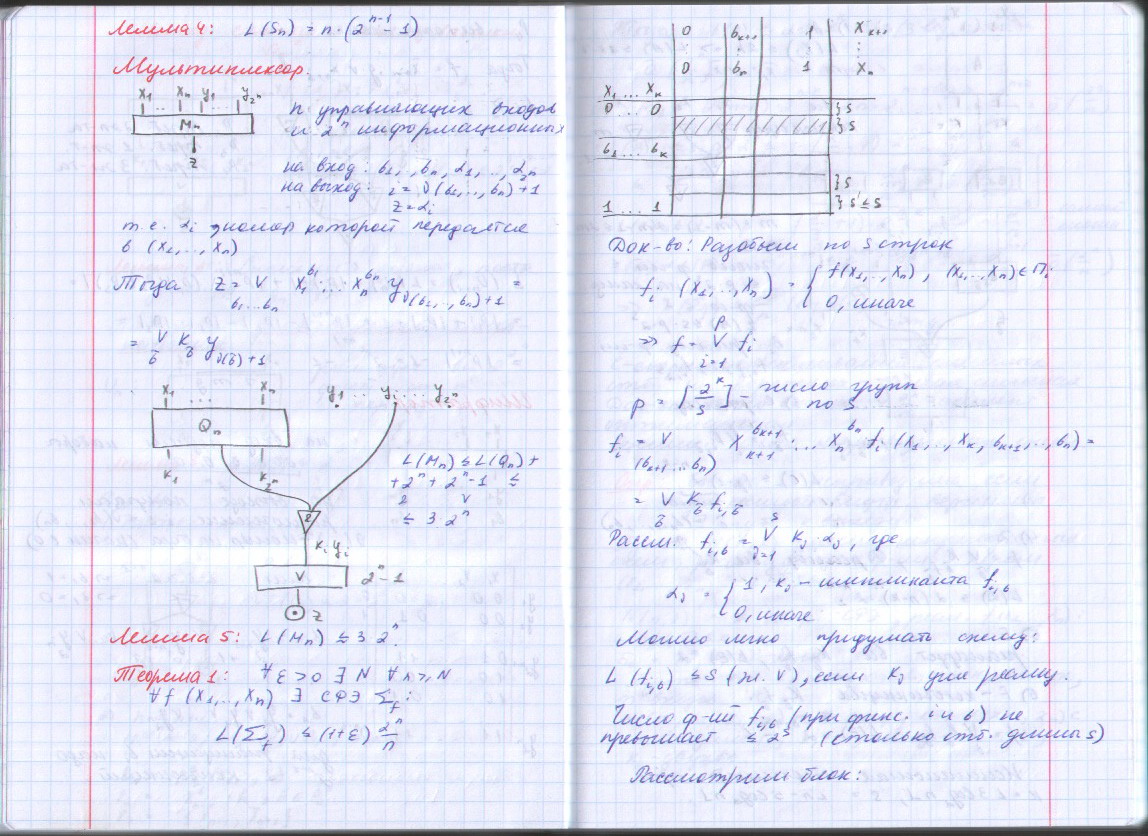 Лемма 4: L(Sn) = n·(2^{n-1} - 1)
Мультиплексор.
X1 ... Xn y1 ... y_{2^n}
Mn
Z
n управляющих входов
и 2^n информационных
на вход: b1, , bn, α1, .., α_{2^n}
на выход: i = ν(b1, .., bn) + 1
z = αi
т.е. αi, номер которой передаётся
в (x1, .., xn)
Тогда z = V_{b1...bn} X1^{b1} ... Xn^{bn} y_{ν(b1, .., bn)+1} =
= V_{b̃} K_{b̃} y_{ν(b̃)+1}
X1 ... Xn y1 ... yi ... y_{2^n}
Qn
K1 K_{2^n}
L(Mn) ≤ L(Qn) +
+ 2^n + 2^n - 1 ≤
& V
≤ 3·2^n
&
Ki yi
V 2^n - 1
Z
Лемма 5: L(Mn) ≤ 3·2^n
Теорема 1: ∀ε > 0 ∃N ∀n ≥ N
∀f (X1, .., Xn) ∃ СФЭ Σf :
L(Σf) ≤ (1+ε) 2^n/n
0 b_{k+1} 1 X_{k+1}
⋮ ⋮ ⋮
0 bn 1 Xn
X1 ... Xk
0 ... 0 } s
} s
b1 ... bk
} s
1 ... 1 } s' ≤ s
Док-во: Разобьем по s строк
fi (X1, .., Xn) = { f(X1, .., Xn), (X1, .., Xn) ∈ Πi
0, иначе
=> f = V_{i=1}^{p} fi
p = ]2^k/s[ - число групп
по s
fi = V_{(b_{k+1}...bn)} X_{k+1}^{b_{k+1}} ... Xn^{bn} fi (X1, .., Xk, b_{k+1}, .., bn) =
= V_{b̃} K_{b̃} f_{i,b̃}
Рассм. f_{i,b} = V_{j=1}^{s} Kj·αj, где
αj = { 1, Kj - импликанта f_{i,b}
0, иначе
Можно легко придумать схему:
L (f_{i,b}) ≤ s (эл. V), если Kj уже реализ.
Число ф-ий f_{i,b} (при фикс. i и b) не
превышает ≤ 2^s (столько стб. длины s)
Рассмотрим блок: